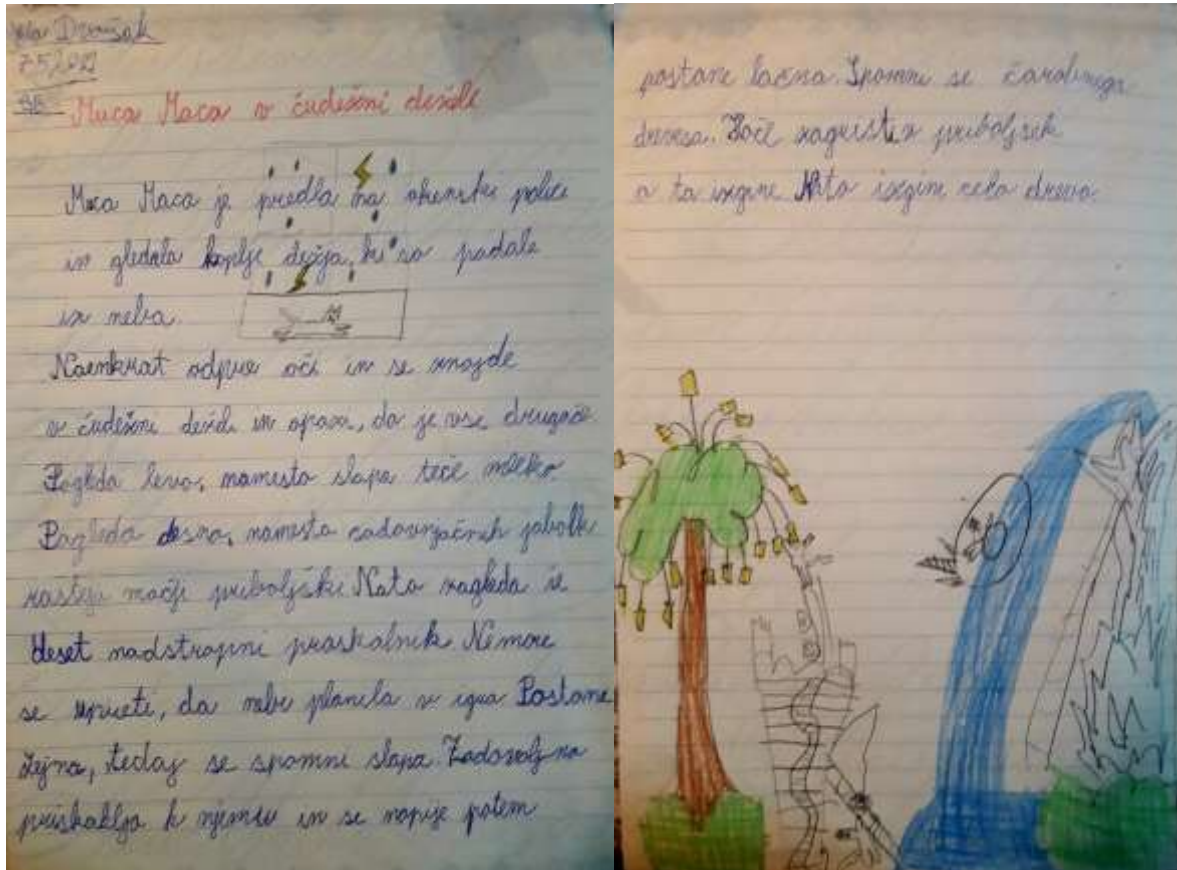 Dvoršak
7.5.2021
Muca Maca v čudežni deželi
Muca Maca je predla na okenski polici
in gledala kaplje dežja, ki so padale
iz neba.
Naenkrat odpre oči in se znajde
v čudežni deželi in opazi, da je vse drugače.
Pogleda levo, namesto slapa teče mleko.
Pogleda desno, namesto sadovnjačnih jabolk
rastejo mačji priboljški. Nato zagleda še
deset nadstropni praskalnik. Nemore
se upreti, da nebi planila v igro. Postane
žejna, tedaj se spomni slapa. Zadovoljno
priskaklja k njemu in se napije potem
postane lačna. Spomni se čarobnega
drevesa. Hoče zagristi v priboljšek
a ta izgine. Nato izgine celo drevo.